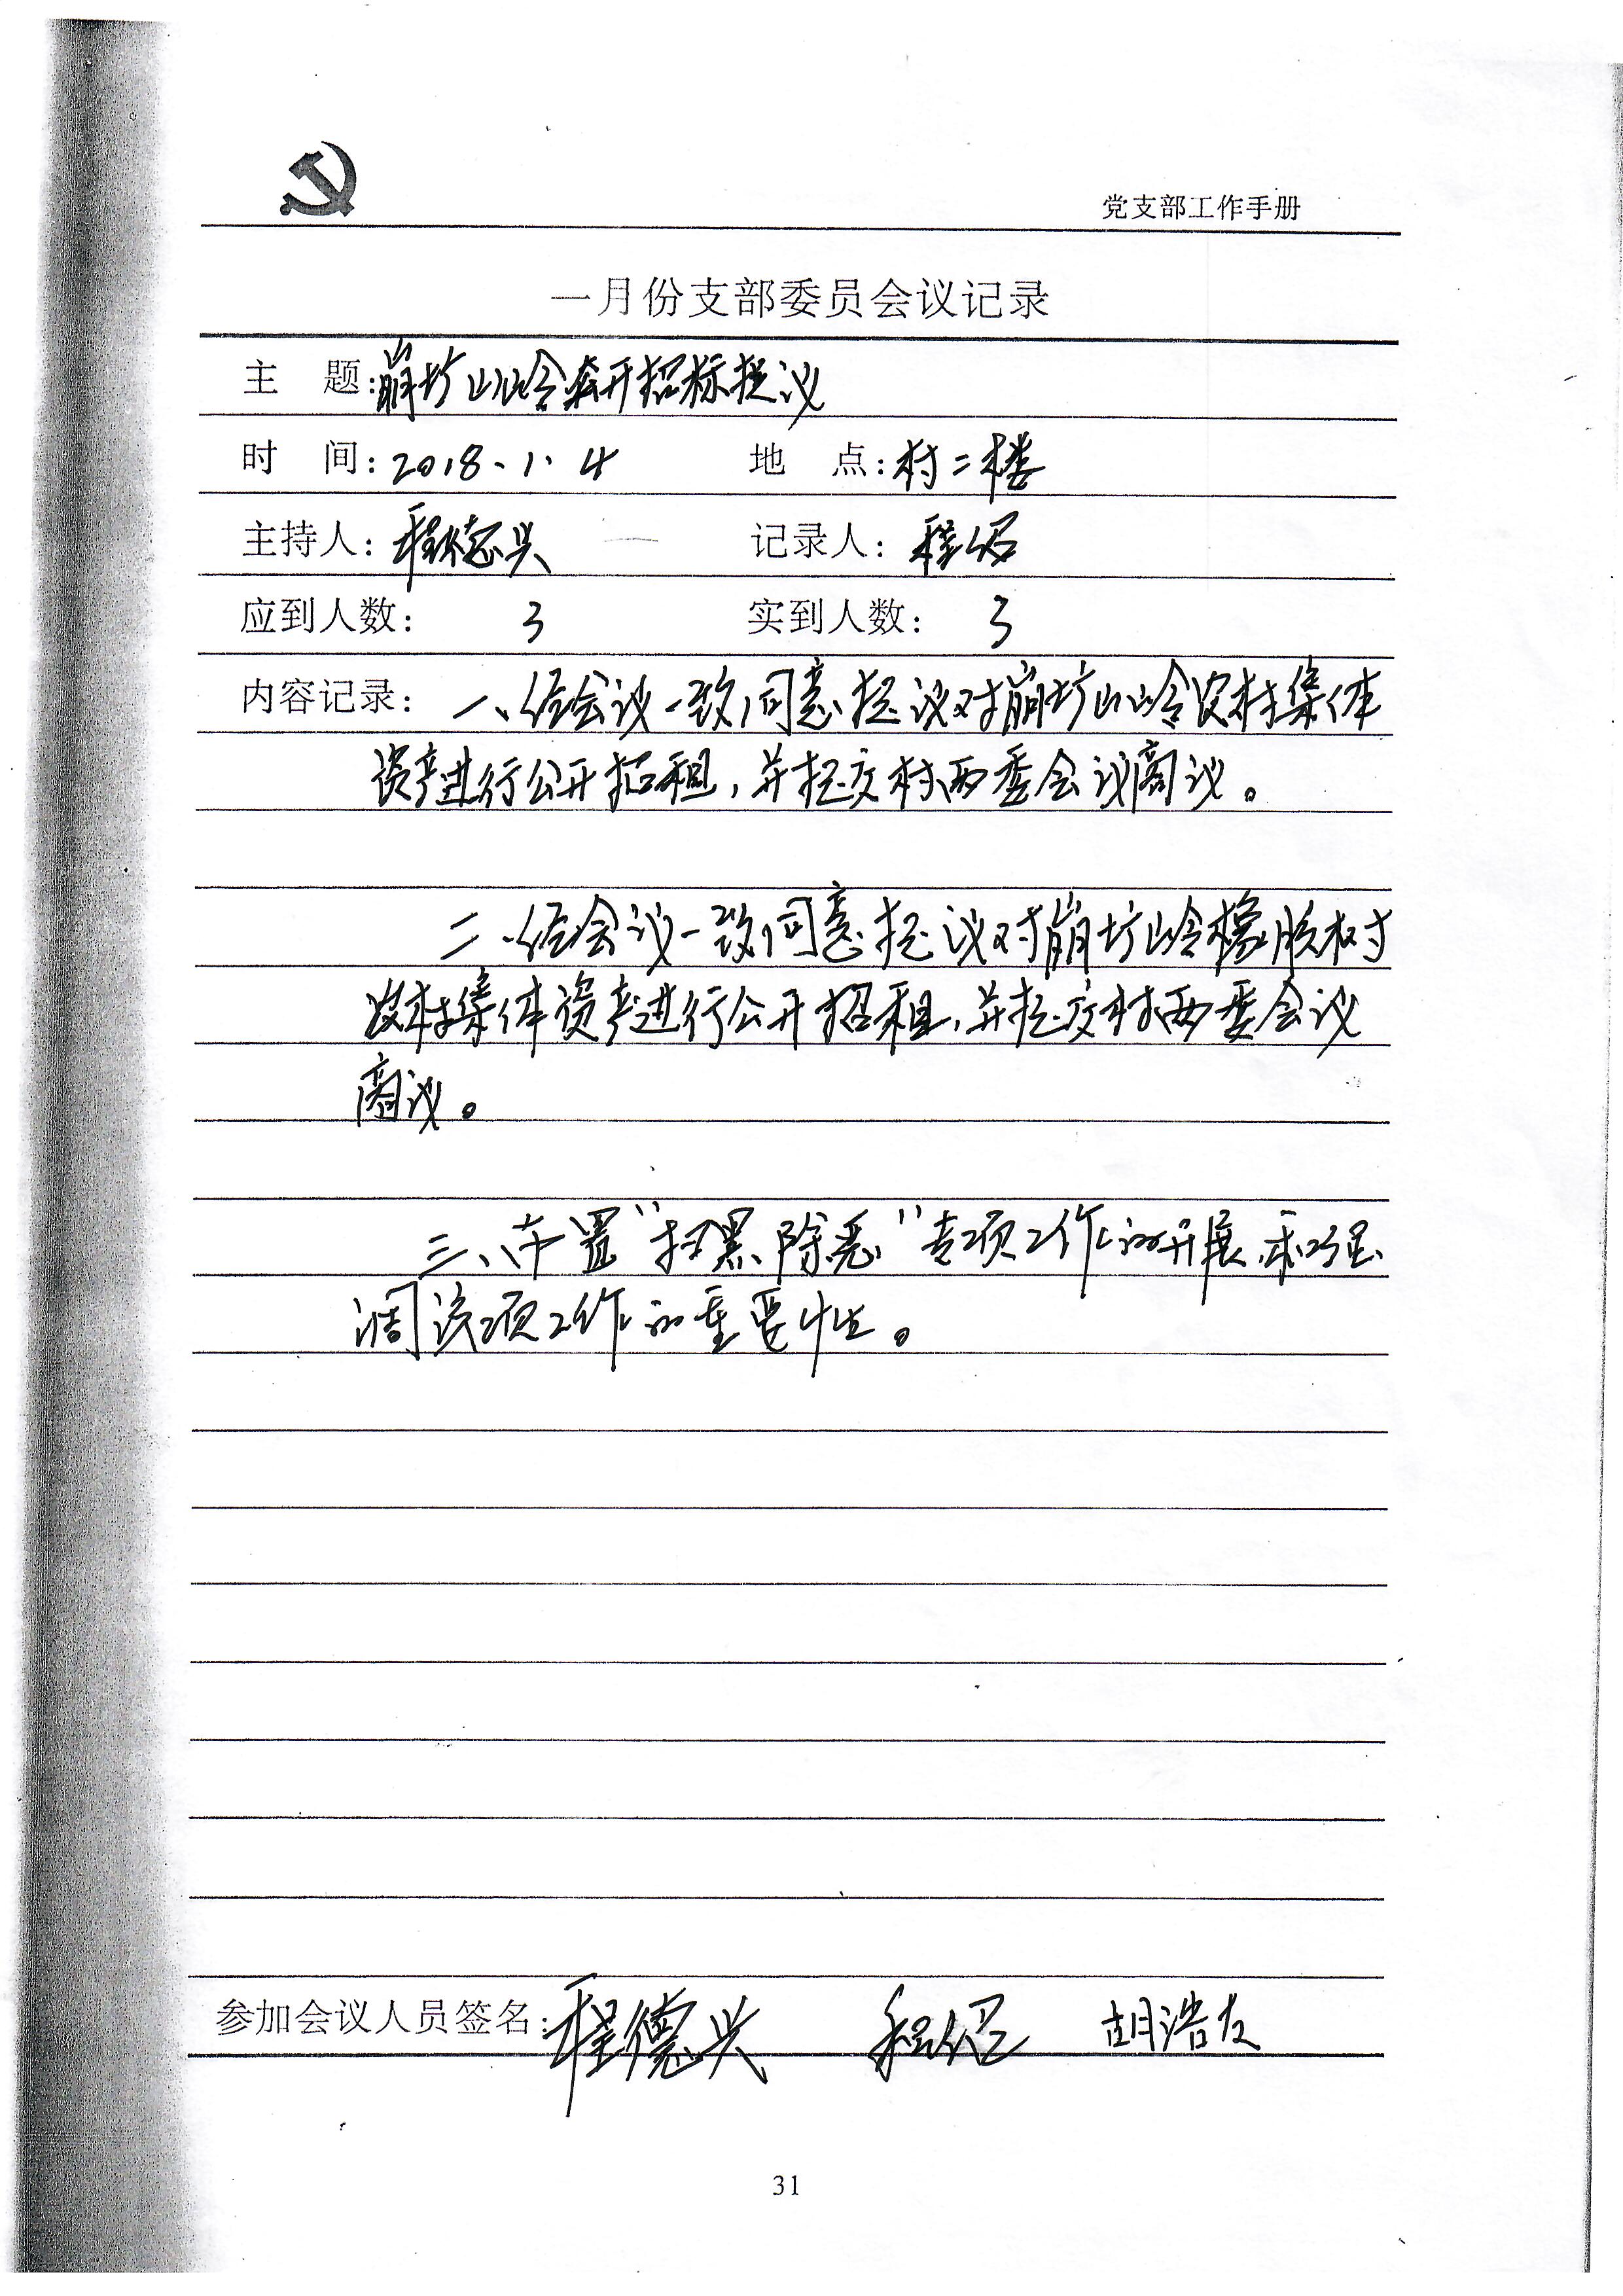 党支部工作手册
一月份支部委员会议记录
主 题:崩圹山岭公开招标提议
时 间:2018.1.4 地 点:村二楼
主持人:程德兴 记录人:程绍
应到人数: 3 实到人数: 3
内容记录: 一、经会议一致同意提议对崩圹山岭农村集体
资产进行公开招租,并提交村两委会议商议。
二、经会议一致同意提议对崩圹岭橡胶树
农村集体资产进行公开招租,并提交村两委会议
商议。
三、布置“扫黑除恶”专项工作的开展和强
调该项工作的重要性。
参加会议人员签名:程德兴 程绍 胡浩友
31